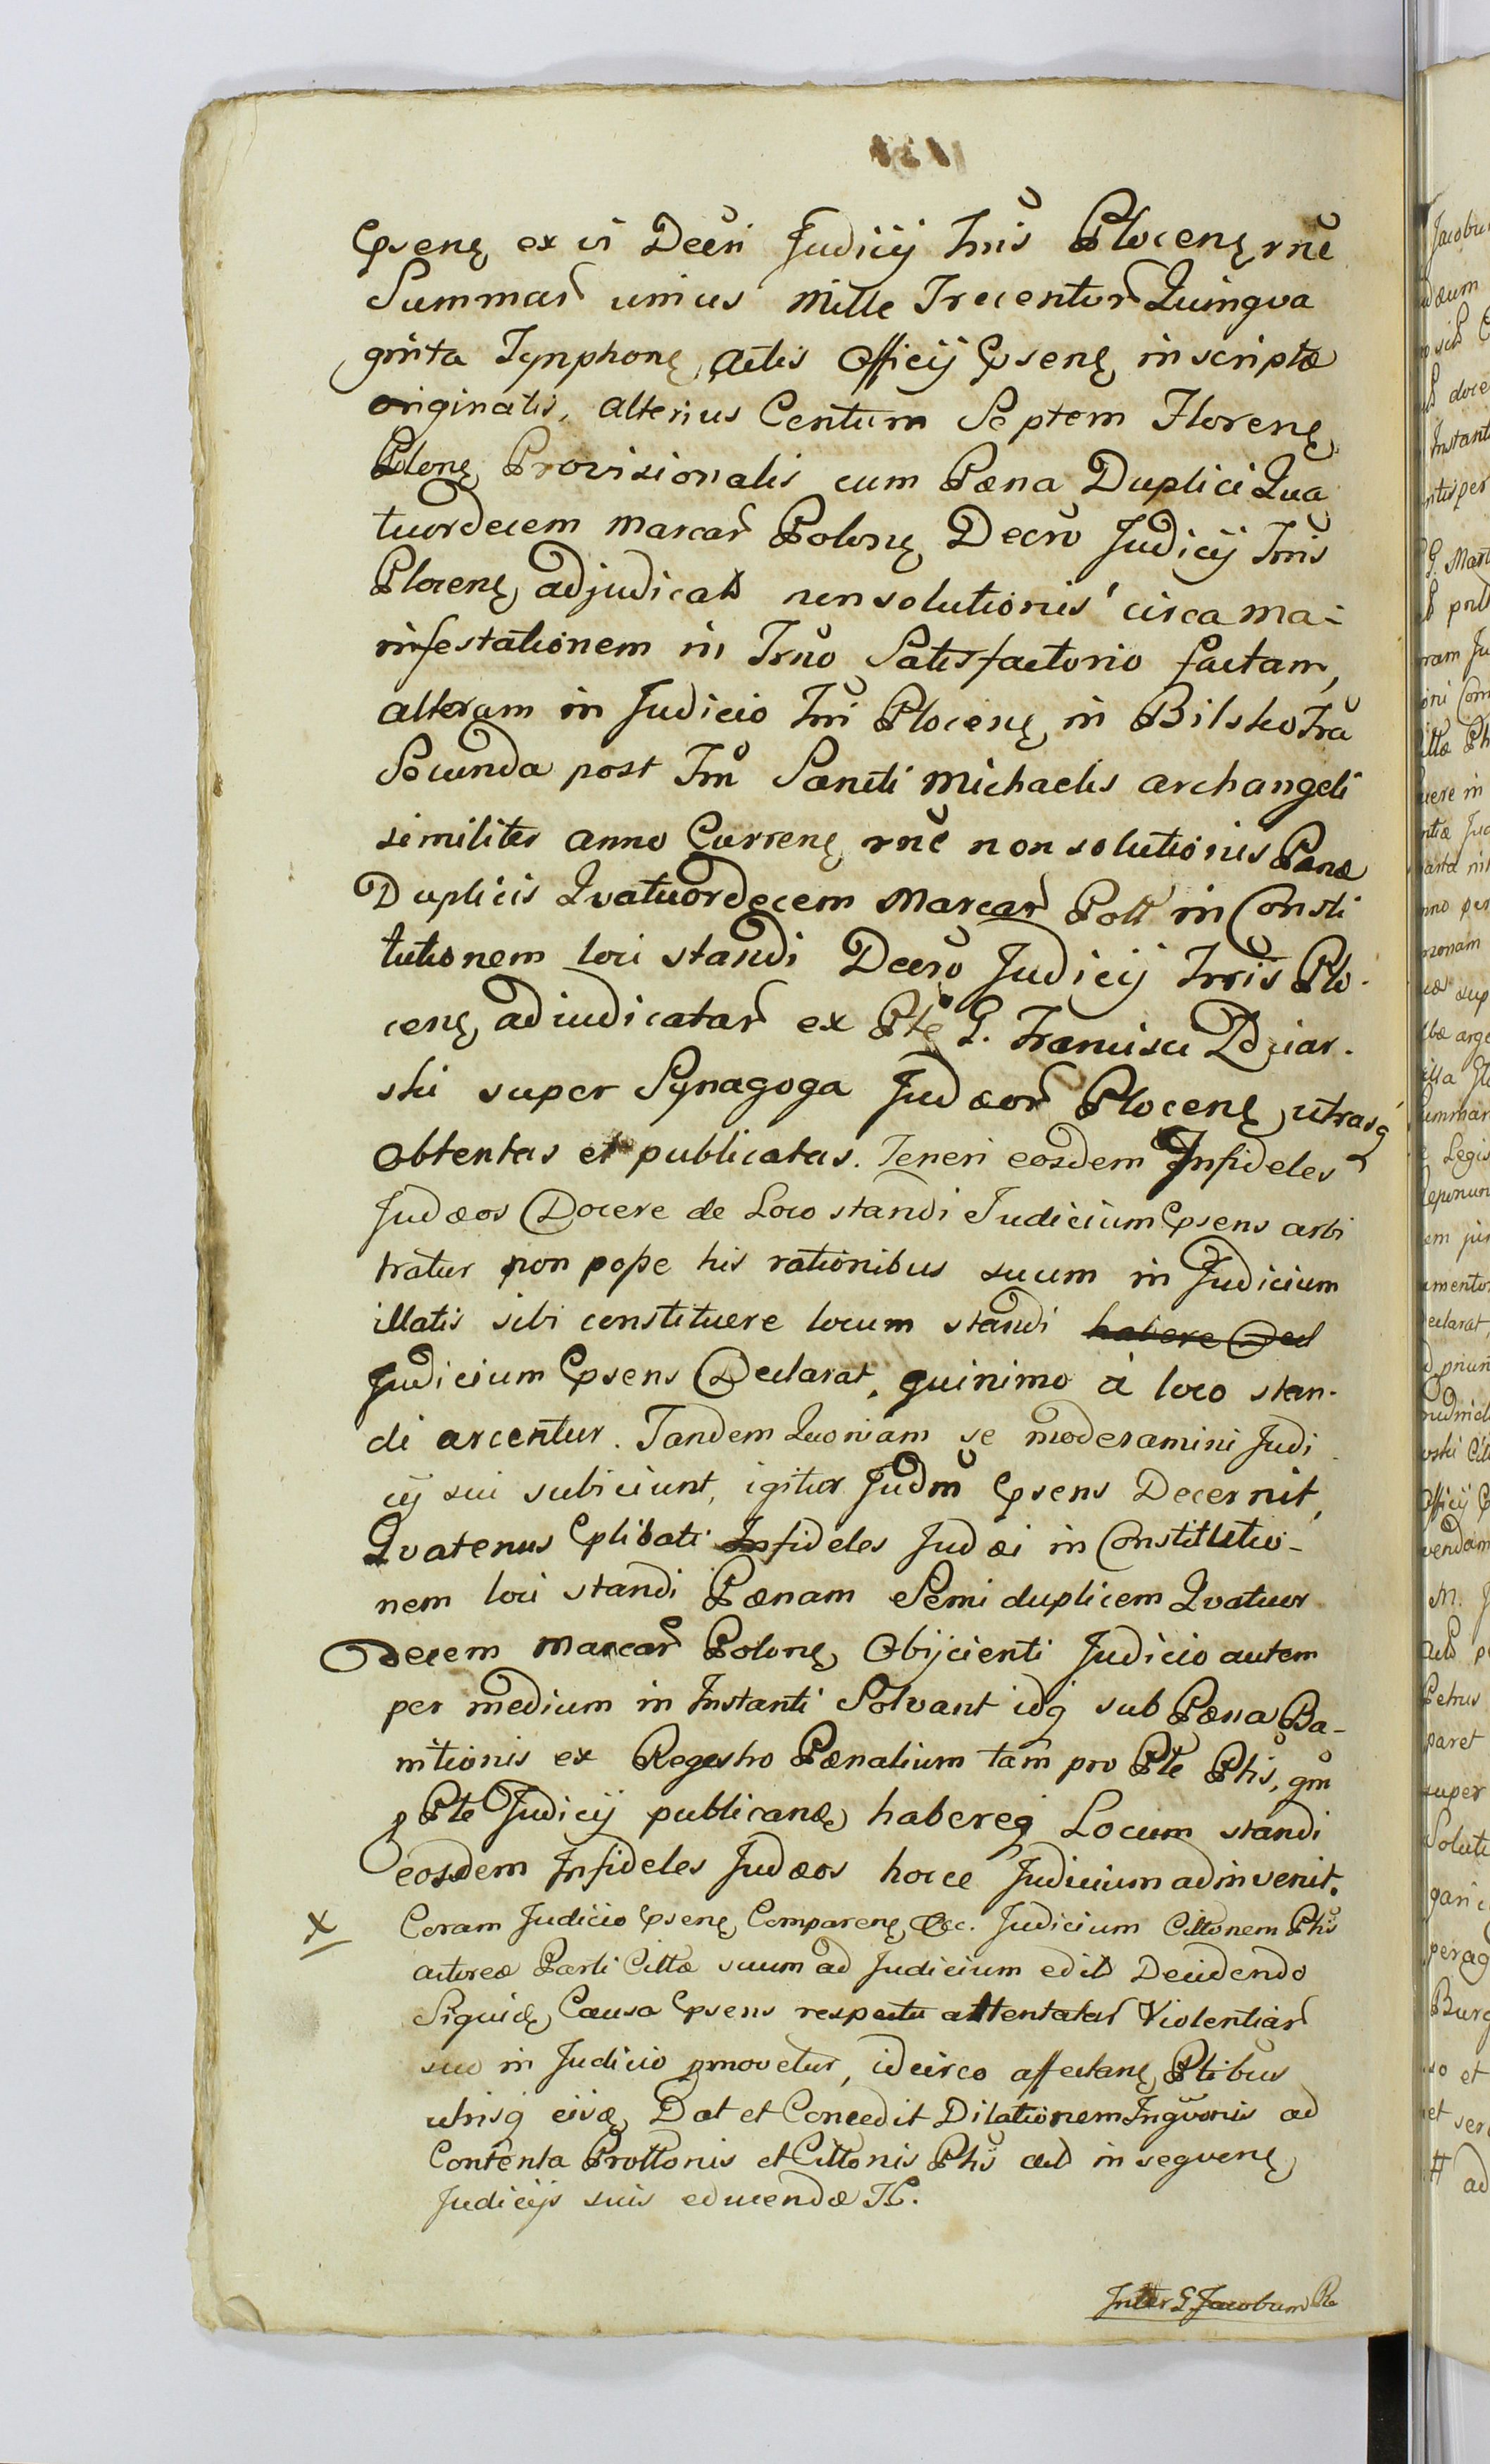 Ꝓsenę ex vi Decri Judicij Tris Plocenę rne
Summar unius Mille Trecentor Quinqva
ginta Tynphonę, Actis Officij Ꝓsenę inscriptæ
originalis, alterius Centum Septem Florenę
Polonę Provisionalis cum Pæna Duplici Qua
tuordecem Marcar Polonę Decro Judicij Tris
Plocenę adjudicat nonsolutionis circa ma-
nifestationem in Trno Satisfactorio factam,
alteram in Judicio Tri Plocenę in Bilsko Fra
Secunda post Fm Sancti Michaelis archangeli
similiter anno Currenę rne non solutionis Pænæ
Duplicis Qvatuordecem Marcar Poll in Consti
tutionem loci standi Decro Judicij Trris Plo-
cenę adiudicatar ex Pte G. Francisci Dziar-
ski super Synagoga Judæor Plocenę utrasq
obtentas et publicatas. Teneri eosdem Infideles
Judæos Docere de Loco standi Judicium Ꝓsens arbi
tratur non posse his rationibus suum in Judicium
illatis sibi constituere locum standi habere Decl
Judicium Ꝓsens Declarat, quinimo à loco stan-
di arcentur. Tandem Quoniam se moderamini Judi
cij sui subiiciunt, igitur Judm Ꝓsens Decernit,
Qvatenus Ꝓlibati Infideles Judæi in Constitutio-
nem loci standi Pænam Semiduplicem Qvatuor
Decem Marcar Polonę Obijcienti Judicio autem
per medium in Instanti Solvant idq sub Pæna Ba-
nitionis ex Regestro Pænalium tam pro Pte Ptis, qm
ꝓ Pte Judicij publicandę habereq Locum standi
eosdem Infideles Judæos hocce Judicium adinvenit.
X Coram Judicio Ꝓsenę Comparenę &c. Judicium Cittonem Ptis
actoreæ Parti Cittæ suum ad Judicium edit Decidendo
Siquidę Causa Ꝓsens respectu attentatar Violentiar
suo in Judicio ꝓmovetur, idcirco affectanę Ptibus
utrisq eisdę Dat et Concedit Dilationem Inqvonis ad
Contenta Prottonis et Cittonis Ptis in seqvenę
Judicijs suis educendæ
Inter G Jacobum